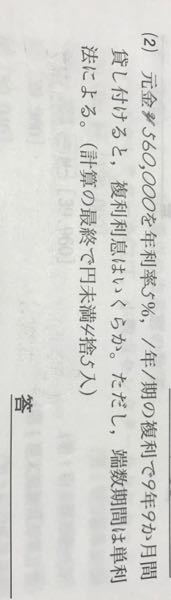 (2) 元金¥560,000を年利率5%，1年1期の複利で9年9か月間
貸し付けると，複利利息はいくらか。ただし，端数期間は単利
法による。（計算の最終で円未満4捨5入）
答